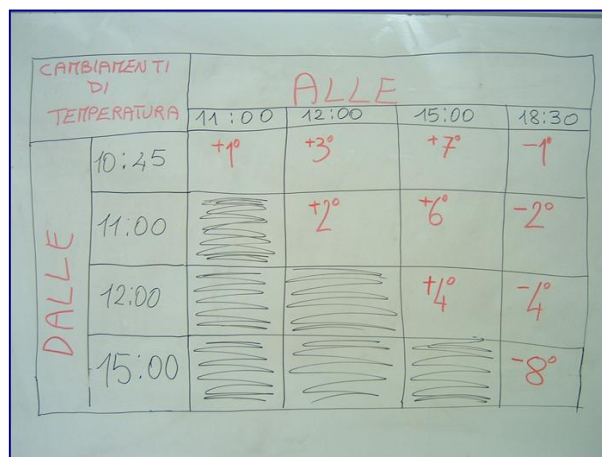 CAMBIAMENTI
DI
TEMPERATURA
ALLE
11:00 12:00 15:00 18:30
DALLE
10:45 +1° +3° +7° -1°
11:00 +2° +6° -2°
12:00 +4° -4°
15:00 -8°